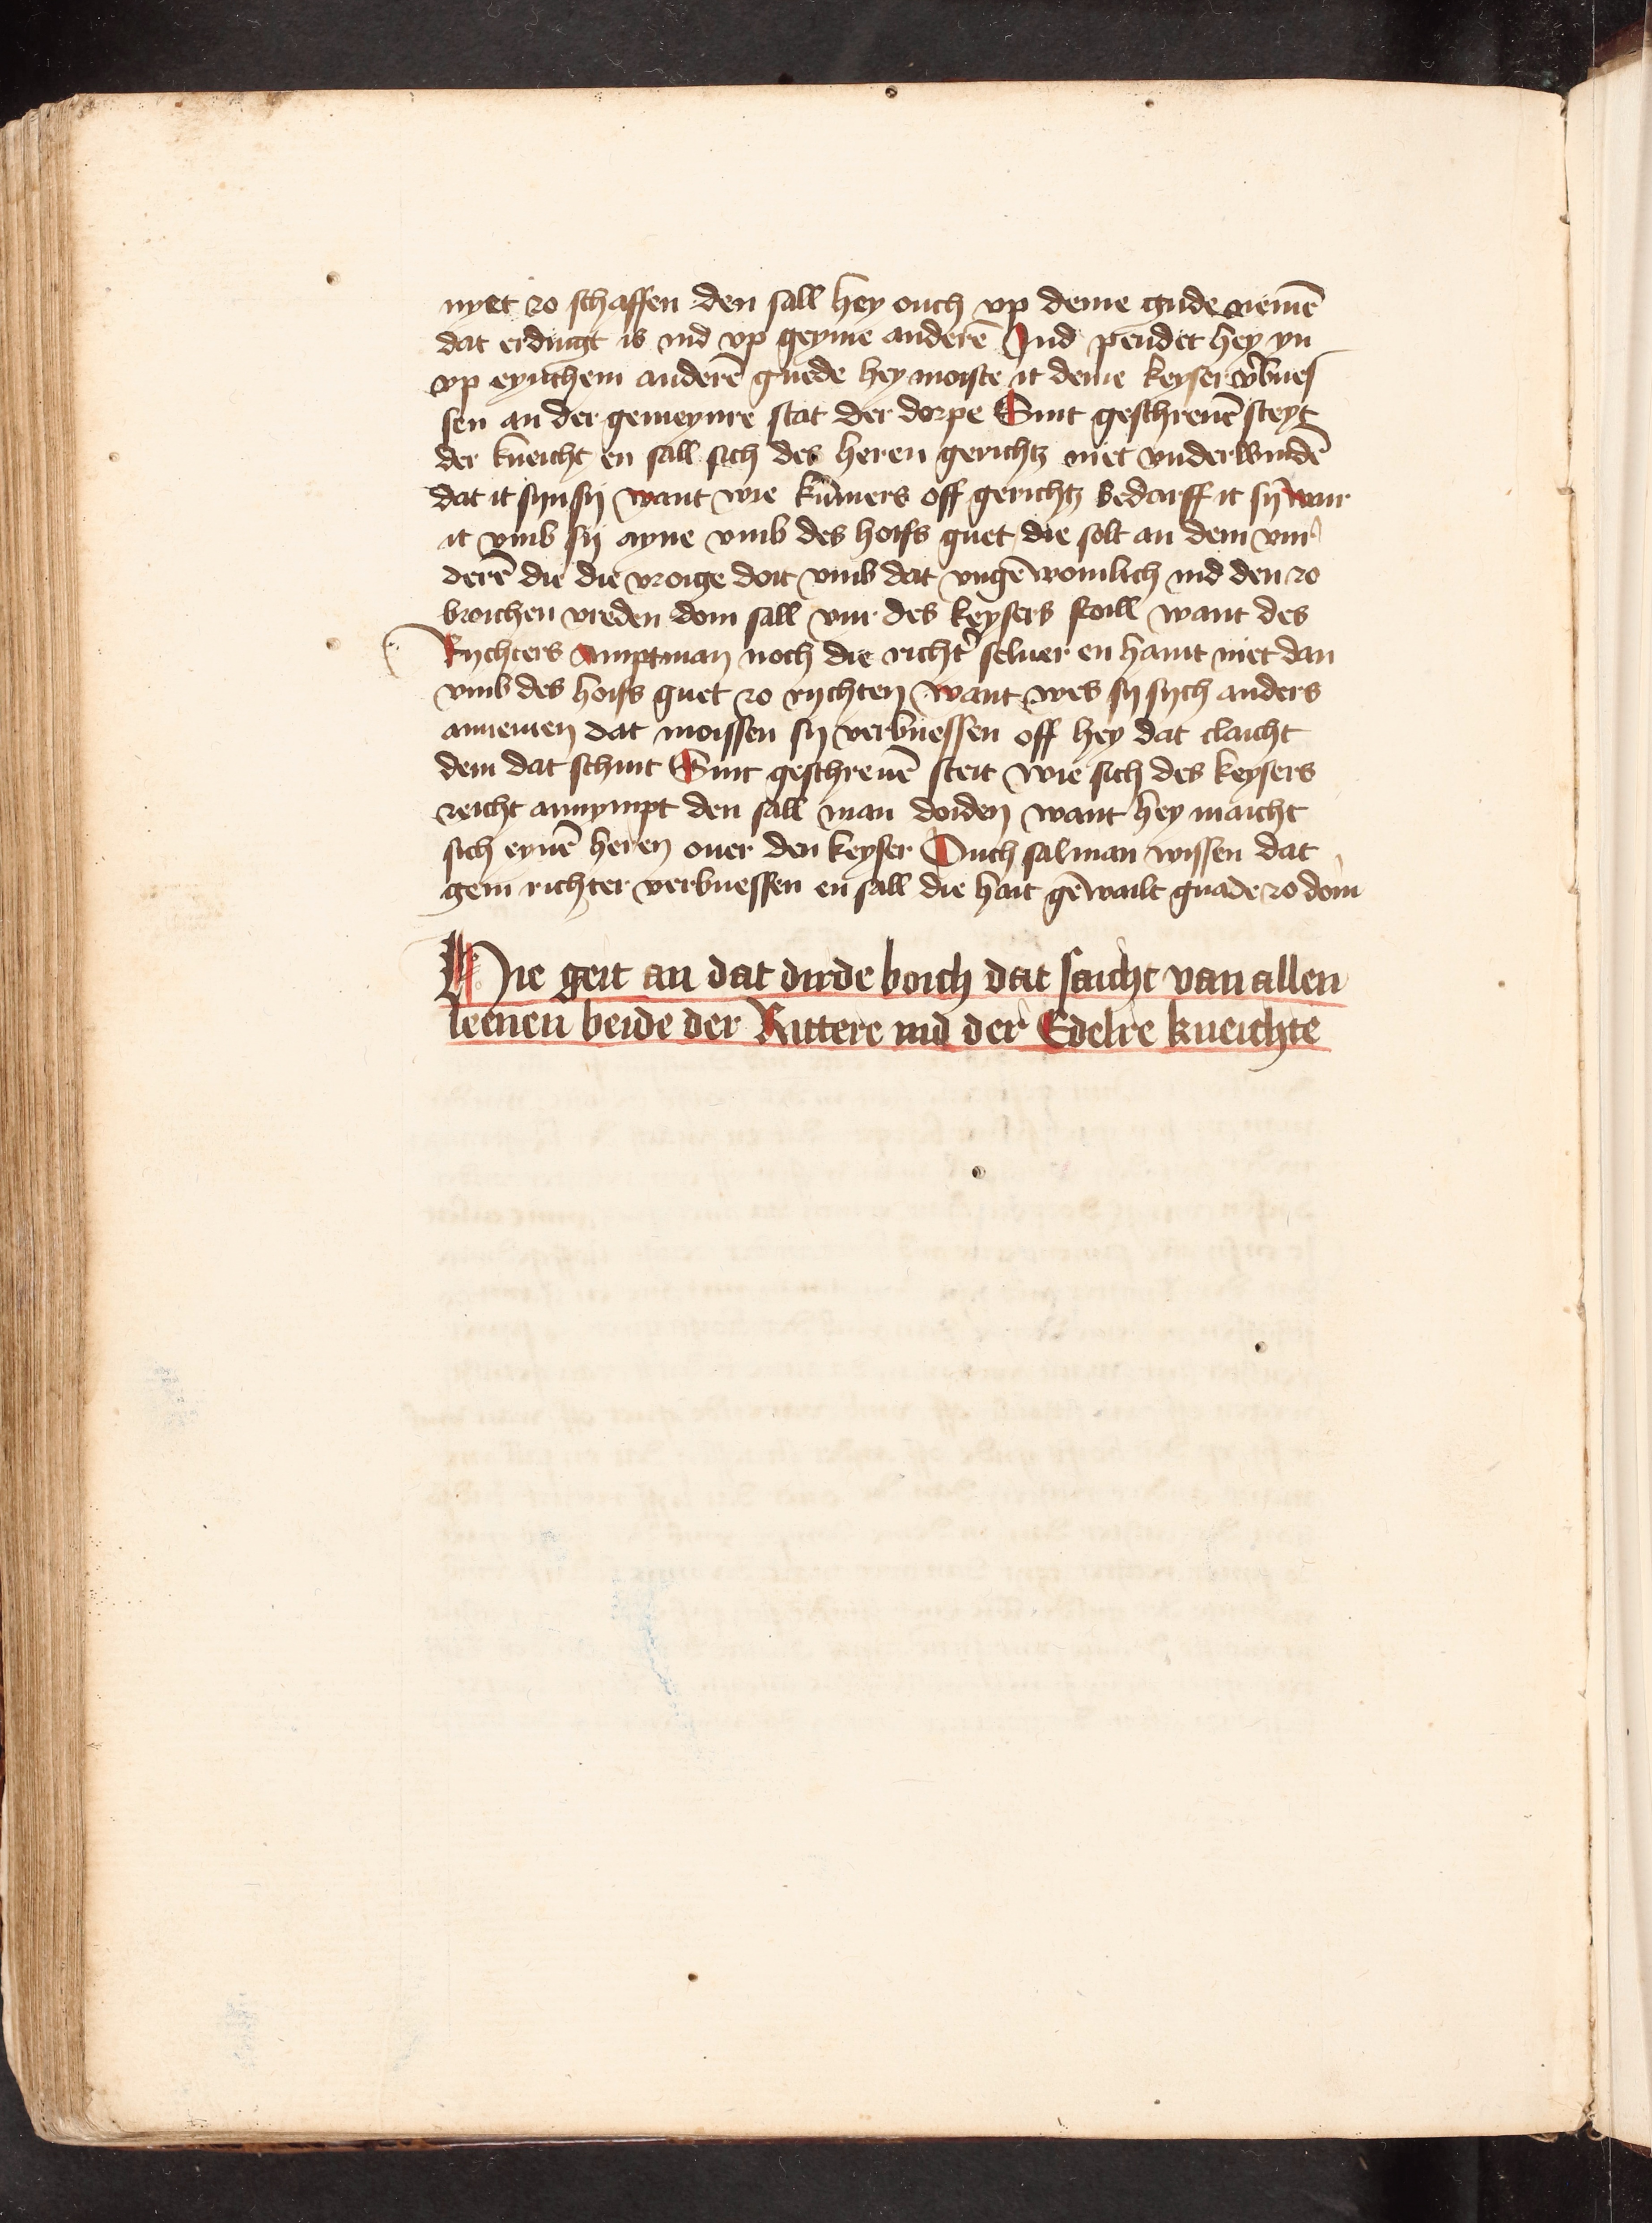 nyet zo schaffen den sall hey ouch vp deme gude nemē
dat erdingt is ind vp geyme anderē Jnd pendet hey yn
vp eynchem anderē guede hey moiste it deme keyser v̓bues
sen an der gemeynre stat der dorpe Sint geschreuē steyt
der kneicht en sall sich des heren gerichtz niet vnderwindē
dat it syn sy want wie kūmers off gerichtz bedarff it sy wair
it vmb sy ayne vmb des hoifs guet die solt an dem vur
derē die die vroige doit vmb dat vngēwonlich ind den zo
broichen vreden dom sall vur des keysers stoill want des
Rychters amptman noch die richt̓ seluer en haint niet dan
vmb des hoifs guet zo rychten want wes sy sych anders
annemen dat moissen sy verbuessen off hey dat claicht
dem dat schint Sint geschreuē steit wie sich des keysers
reicht annympt den sall man doiden want hey maicht
sich eynē heren ouer den keyser Ouch sal man wissen dat
gein richter verbuessen en sall die hait gēwailt gnade zo doin
Hie geit an dat dirde boich dat saicht van allen
leenen beide der Rittere ind der Edelre kneichte